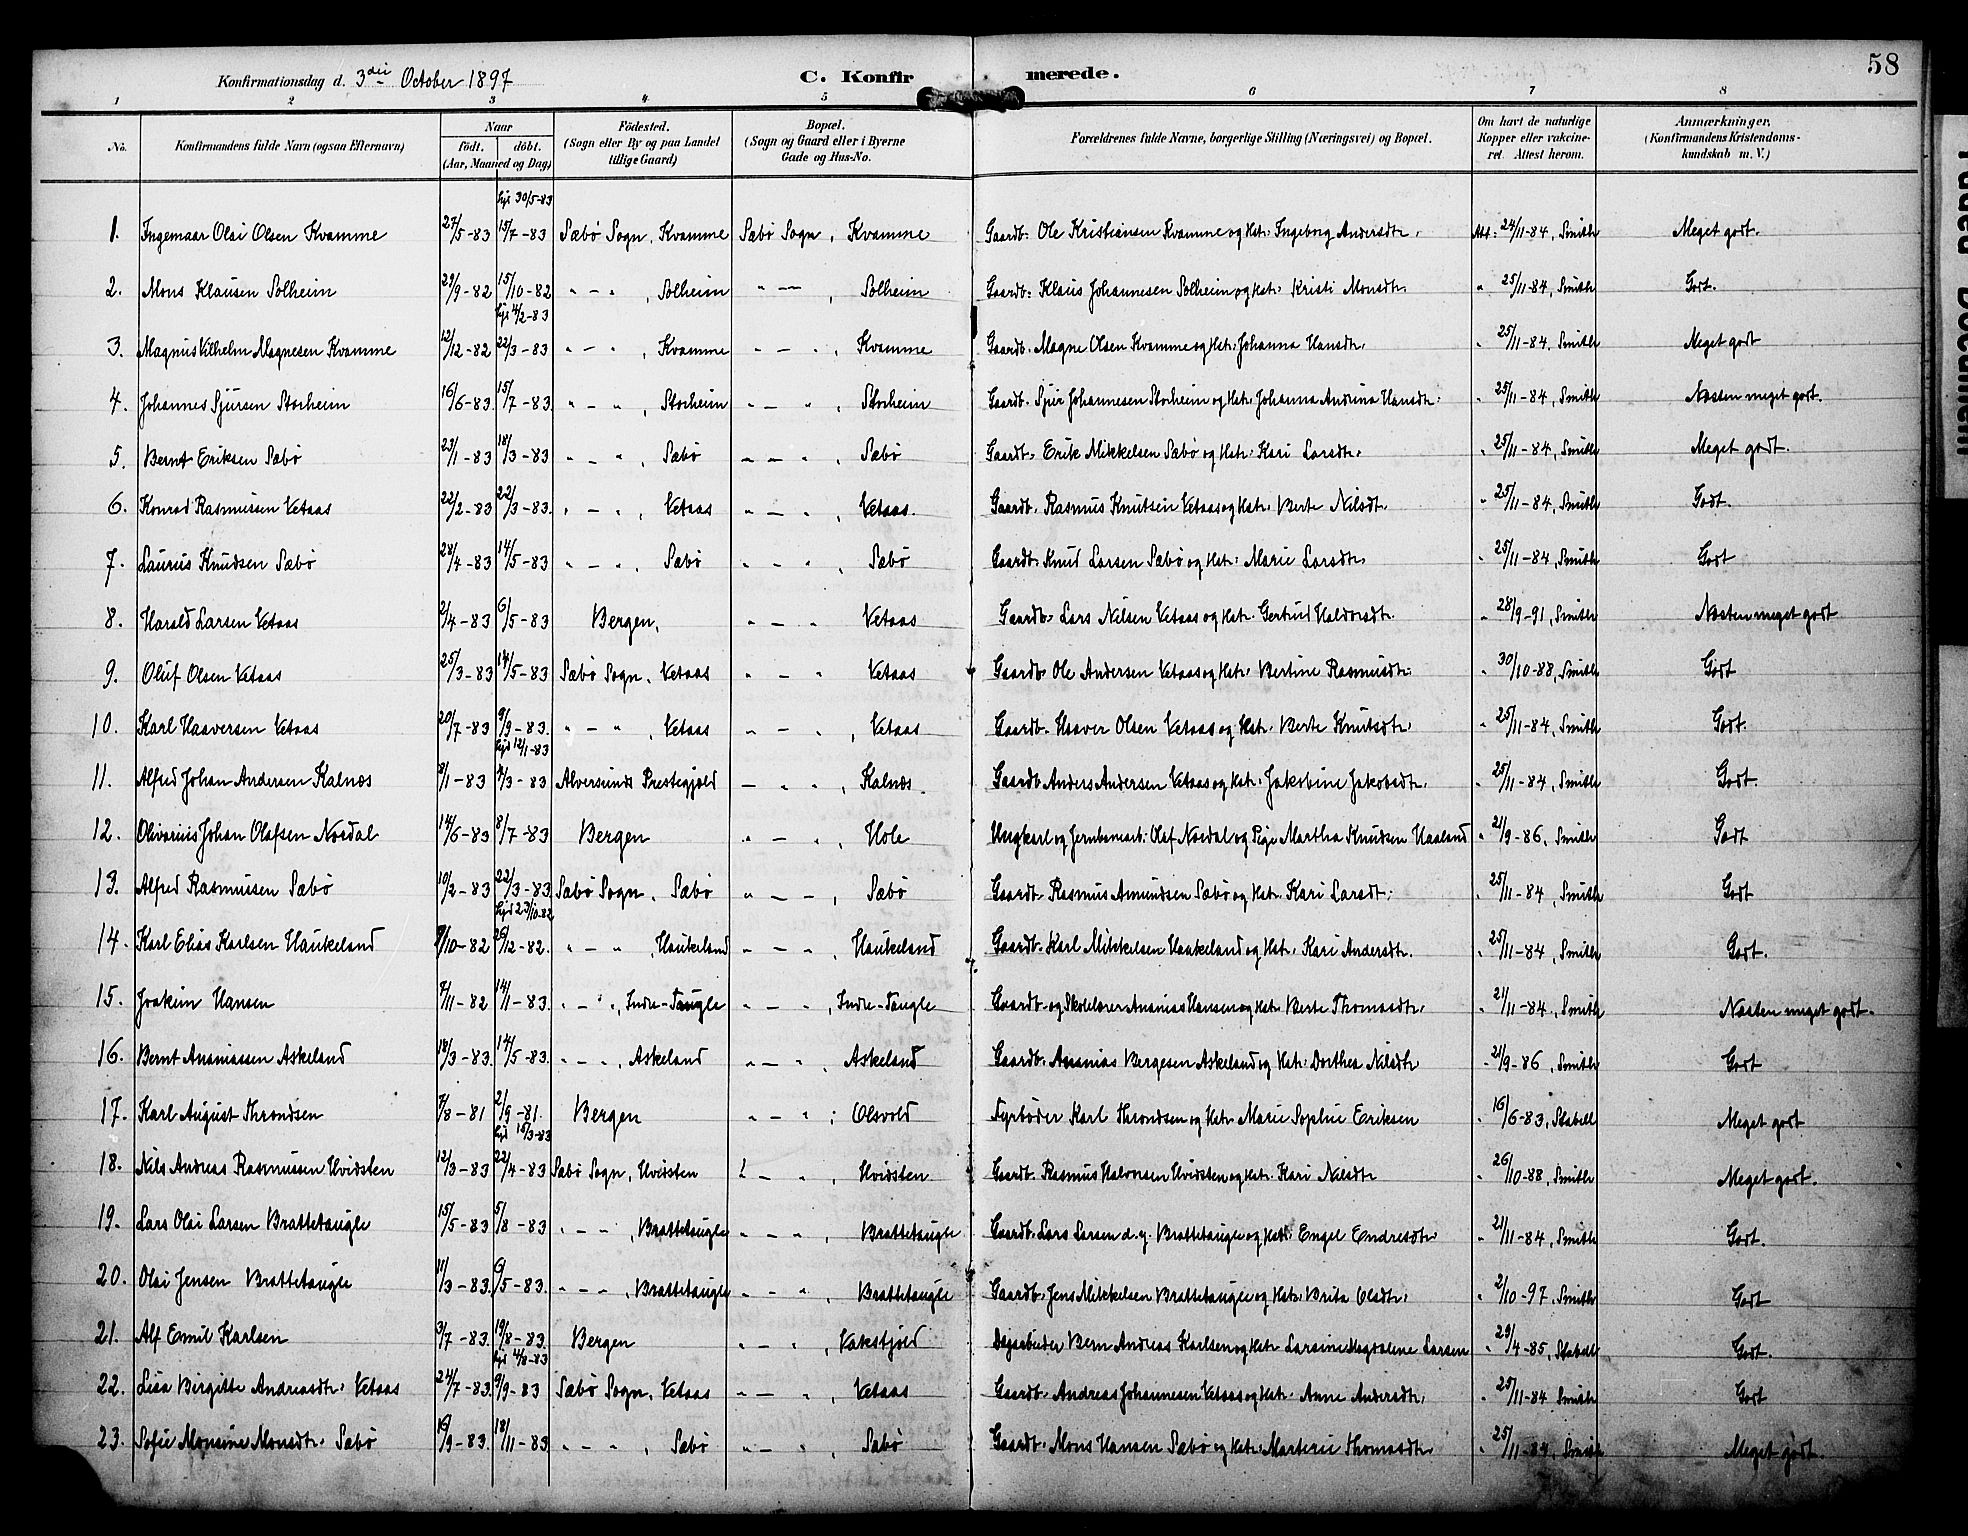 58
Konfirmationsdag d. 3die October 1897
C. Konfirmerede.
1 2 3 4 5 6 7 8
No. Konfirmandens fulde Navn (ogsaa Efternavn) Naar født. døbt. (Aar, Maaned og Dag) Fødested. (Sogn eller By og paa Landet tillige Gaard) Bopæl. (Sogn og Gaard eller i Byerne Gade og Hus-No. Forældrenes fulde Navne, borgerlige Stilling (Næringsvei) og Bopæl. Om havt de naturlige Kopper eller vakcineret. Attest herom. Anmærkninger. (Konfirmandens Kristendomskundskab m. V.)
hjd 30/5-83
1. Ingemaar Olai Olsen Kvamme 27/5-83 15/7-83 Sæbø Sogn, Kvamme Sæbø Sogn, Kvamme Gaardb: Ole Kristiansen Kvamme og Hstr: Ingeborg Andersdtr. Att: 24/11-84, Smith Meget godt.
2. Mons Klausen Solheim 29/9-82 15/10-82 " - " , Solheim " - " , Solheim Gaardb: Klaus Johannesen Solheim og Hstr: Kristi Monsdtr. " 25/11-84, Smith Godt.
hjd 4/2-83
3. Magnus Vilhelm Magnesen Kvamme 12/12-82 22/3-83 " - " , Kvamme " - " , Kvamme Gaardb. Magne Olsen Kvamme og Hstr. Johanna Hansdtr. " 25/11-84. Smith Meget godt
4. Johannes Sjursen Storheim 16/6-83. 15/7-83. " - " , Storheim " - " , Storheim Gaardb. Sjur Johannesen Storheim og Hstr. Johanna Andrina Hansdtr. " 25/11-84, Smith Næsten meget godt.
5. Bernt Eriksen Sæbø 23/1-83 18/3-83 " - " , Sæbø " - " , Sæbø Gaardb. Erik Mikkelsen Sæbø og Hstr. Kari Larsdtr. " 25/11-84, Smith Meget godt.
6. Konrad Rasmussen Vetaas 22/2-83 22/3-83. " - " , Vetaas " - " , Vetaas. Gaardb. Rasmus Knutsen Vetaas og Hstr. Berte Nilsdtr. " 25/11-84, Smith Godt.
7. Laurus Knudsen Sæbø 28/4-83 14/5-83 " - " , Sæbø " - " , Sæbø Gaardb. Knud Larsen Sæbø og Hstr. Marie Larsdtr. " 25/11-84, Smith Godt
8. Harald Larsen Vetaas 2/4-83 6/5-83 Bergen, " - " Vetaas Gaardb. Lars Nilsen Vetaas og Hstr. Gertrud Haldorsdtr. " 28/9-91, Smith Næsten meget godt
9. Oluf Olsen Vetaas 25/3-83 14/5-83 Sæbø Sogn, Vetaas " - " Vetaas Gaardb. Ole Andersen Vetaas og Hstr. Bertine Rasmusdtr. " 30/10-88, Smith Godt
10. Karl Haaversen Vetaas 20/7-83 9/9-83. " - " , Vetaas " - " , Vetaas Gaardb. Haaver Olsen Vetaas og Hstr. Berte Knutsdtr. " 25/11-84, Smith Godt.
hjd 12/1-83
11. Alfred Johan Andersen Kalnæs 8/1-83 4/3-83 Alversunds Prestegjæld - " " , Kalnæs. Gaardb. Anders Andersen Vetaas og Hstr. Jakobine Jakobsdtr. " 25/11-84, Smith Godt.
12. Olivarius Johan Olafsen Nosdal 14/6-83 8/7-83 Bergen " - " , Hole Ungkarl og Jernbanearb: Olaf Nosdal og Pige Martha Knudsen Haaland " 21/9-86, Smith Godt
13. Alfred Rasmussen Sæbø 10/2-83 22/3-83. Sæbø Sogn, Sæbø " - " , Sæbø Gaardb. Rasmus Amundsen Sæbø og Hstr. Kari Larsdtr. " 25/11-84, Smith Godt
hjd 23/10-82
14. Karl Elias Karlsen Haukeland 9/10-82 26/12-82. " - " , Haukeland " - " , Haukeland Gaardb. Karl Mikkelsen Haukeland og Hstr. Kari Andersdtr. " 25/11-84, Smith Godt.
15. Joakim Hansen 7/11-82 14/1-83. " - " , Indre-Taugle " - " , Indre-Taugle Gaardb. og Skolelærer Ananias Hansen og Hstr. Berte Thomasdtr. " 21/11-84, Smith Næsten meget godt.
16. Bernt Ananiassen Askeland 18/3-83. 14/5-83. " - " , Askeland " - " Askeland Gaardb. Ananias Bergesen Askeland og Hstr. Dorthea Nilsdtr " 21/9-86, Smith Godt
17. Karl August Throndsen 7/8-81 2/9-81. Bergen " - " , Olsvold Fyrbøder Karl Throndsen og Hstr. Marie Sophie Eriksen " 16/6-83, Stabell Meget godt
hjd 15/3-83
18. Nils Andreas Rasmussen Hvidsten 12/3-83 22/4-83 Sæbø Sogn, Hvidsten - " , Hvidsten Gaardb. Rasmus Halvorsen Hvidsten og Hstr. Kari Nilsdtr " 26/10-88, Smith Meget godt.
19. Lars Olai Larsen Brattetaugle 15/5-83 5/8-83 " - " , Brattetaugle " - " , Brattetaugle Gaardb. Lars Larsen d. y. Brattetaugle og Hstr. Engel Endresdtr. " 21/11-84, Smith Godt.
20. Olai Jensen Brattetaugle 11/3-83. 6/5-83. " - " , Brattetaugle " - " , Brattetaugle Gaardb. Jens Mikkelsen Brattetaugle og Hstr. Brita Olsdtr. " 2/10-97, Smith Godt
21. Alf Emil Karlsen 3/7-83. 19/8-83. Bergen " - " , Vakstjold Dagarbeider Bern Andreas Karlsen og Hstr Larsine Magdalene Larsen " 29/4-85, Stabell Godt.
hjd 4/8-83
22. Lisa Birgitte Andreasdtr. Vetaas 24/7-83. 9/9-83 Sæbø Sogn, Vetaas " - " , Vetaas Gaardb. Andreas Johannesen Vetaas og Hstr. Anne Andersdtr. " 25/11-84 Smith Godt
23. Sofie Monsine Monsdtr. Sæbø 16/9-83. 18/11-83 " - " , Sæbø " - " , Sæbø Gaardb. Mons Hansen Sæbø og Hstr. Marterie Thomasdtr. " 25/11-84, Smith Meget godt.